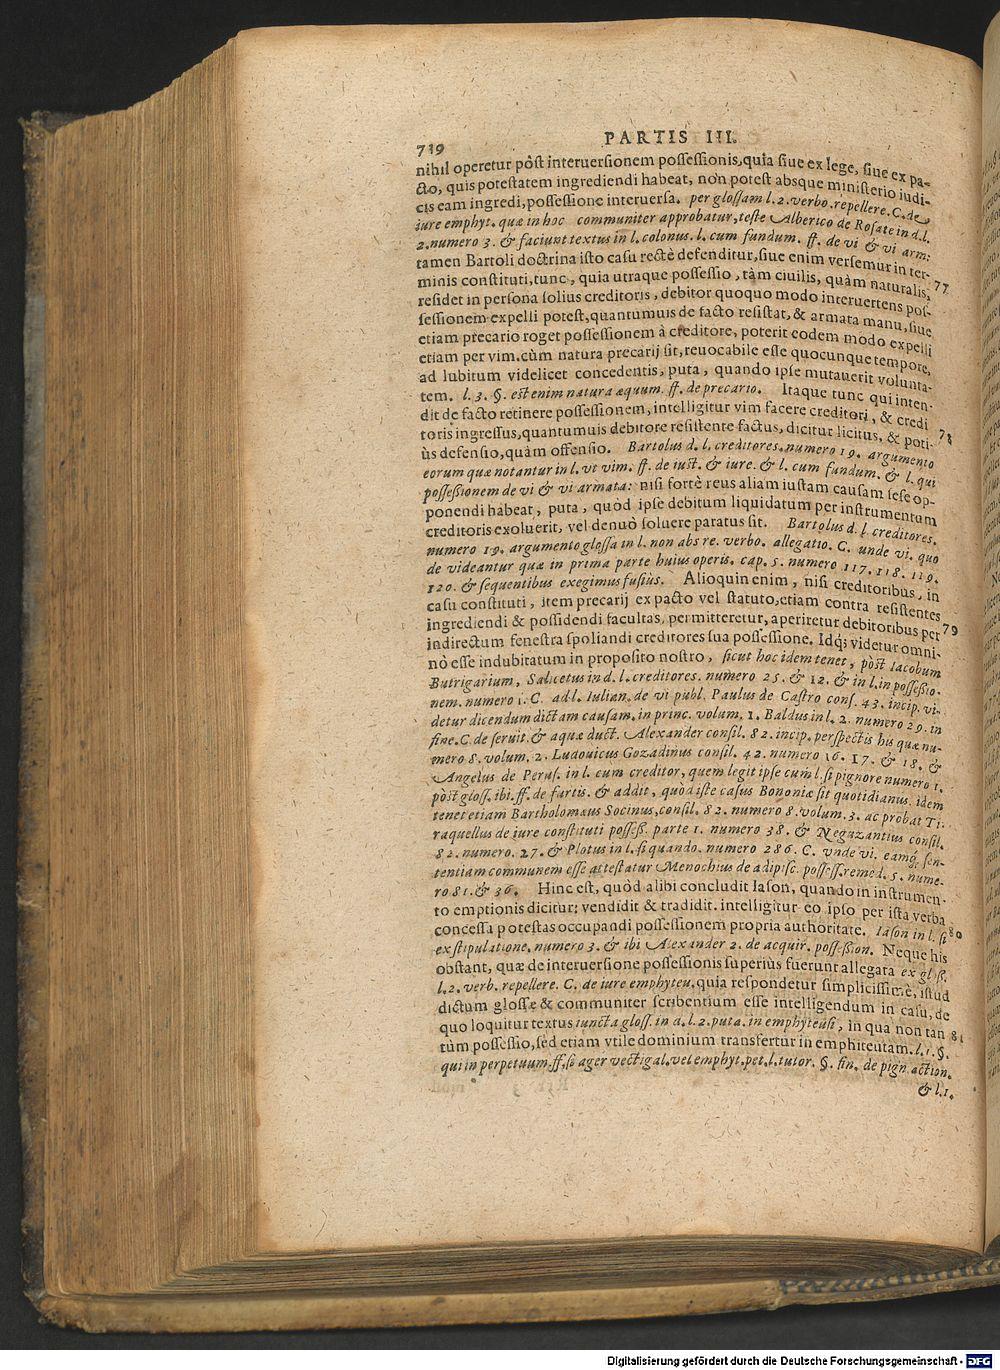 719 PARTIS III.
nihil operetur pòst interuersionem possessionis, quia siue ex lege, siue ex pa-
cto, quis potestatem ingrediendi habeat, non potest absque ministerio iudi-
cis eam ingredi, possessione interuersa. per glossam l. 2. verbo. repellere. C. de
iure emphyt. quæ in hoc communiter approbatur, teste Alberico de Rosate in d. l.
2. numero 3. & faciunt textus in l. colonus. l. cum fundum. ff. de vi & vi arm:
tamen Bartoli doctrina isto casu rectè defenditur, siue enim versemur in ter-
minis constituti, tunc, quia utraque possessio, tàm ciuilis, quàm naturalis, 77
residet in persona solius creditoris, debitor quoquo modo interuertens pos-
sessionem expelli potest, quantumuis de facto resistat, & armata manu, siue
etiam precario roget possessionem à creditore, poterit eodem modo expelli
etiam per vim. cùm natura precarij sit, reuocabile esse quocunque tempore,
ad lubitum videlicet concedentis, puta, quando ipse mutauerit volunta-
tem. l. 3. §. est enim natura æquum. ff. de precario. Itaque tunc qui inten-
dit de facto retinere possessionem, intelligitur vim facere creditori, & credi
toris ingressus, quantumuis debitore resistente factus, dicitur licitus, & poti- 78
ùs defensio, quàm offensio. Bartolus d. l. creditores. numero 19. argumento
eorum quæ notantur in l. vt vim. ff. de iust. & iure. & l. cum fundum. & l. qui
possessionem de vi & vi armata: nisi fortè reus aliam iustam causam sese op-
ponendi habeat, puta, quòd ipse debitum liquidatum per instrumentum
creditoris exoluerit, vel denuò soluere paratus sit. Bartolus d. l. creditores.
numero 19. argumento glossa in l. non abs re. verbo. allegatio. C. unde vi. quo
de videantur quæ in prima parte huius operis. cap. 5. numero 117. 118. 119.
120. & sequentibus exegimus fusiùs. Alioquin enim, nisi creditoribus, in
casu constituti, item precarij ex pacto vel statuto, etiam contra resistentes
ingrediendi & possidendi facultas, permitteretur, aperiretur debitoribus per 79
indirectum fenestra spoliandi creditores sua possessione. Idq; videtur omni-
nò esse indubitatum in proposito nostro, sicut hoc idem tenet, pòst Iacobum
Butrigarium, Salicetus in d. l. creditores. numero 25. & 12. & in l. in possessio-
nem. numero 1. C. ad l. Iulian. de vi publ. Paulus de Castro cons. 43. incip. vi-
detur dicendum dictam causam. in princ. volum. 1. Baldus in l. 2. numero 29. in
fine. C. de seruit. & aquæ duct. Alexander consil. 82. incip. perspectis his quæ nu-
mero 8. volum. 2. Ludouicus Gozadinus consil. 42. numero 16. 17. & 18. &
Angelus de Perus. in l. cum creditor, quem legit ipse cum l. si pignore numero 1.
pòst gloss. ibi. ff. de furtis. & addit, quòd iste casus Bononiæ sit quotidianus. idem
tenet etiam Bartholomæus Socinus, consil. 82. numero 8. volum. 3. ac probat Ti-
raquellus de iure constituti possess. parte 1. numero 38. & Negazantius consil.
82. numero. 27. & Plotus in l. si quando. numero 286. C. vnde vi. eamq́, sen-
tentiam communem esse attestatur Menochius de adipisc. possess. remed. 5. nume-
ro 81. & 36. Hinc est, quòd alibi concludit Iason, quando in instrumen-
to emptionis dicitur; vendidit & tradidit. intelligitur eo ipso per ista verba
concessa potestas occupandi possessionem propria authoritate. Iason in l. si 80
ex stipulatione. numero 3. & ibi Alexander 2. de acquir. possession. Neque his
obstant, quæ de interuersione possessionis superiùs fuerunt allegata ex gloss.
l. 2. verb. repellere. C. de iure emphyteu. quia respondetur simplicissimè, istud
dictum glossæ & communiter scribentium esse intelligendum in casu, de
quo loquitur textus iuncta gloss. in d. l. 2. puta. in emphyteusi, in qua non tan 81
tùm possessio, sed etiam vtile dominium transfertur in emphiteutam. l. 1. §.
qui in perpetuum. ff. si ager vectigal. vel emphyt. pet. l. tutor. §. fin. de pign. action.
& l. 1.
Digitalisierung gefördert durch die Deutsche Forschungsgemeinschaft - DFG